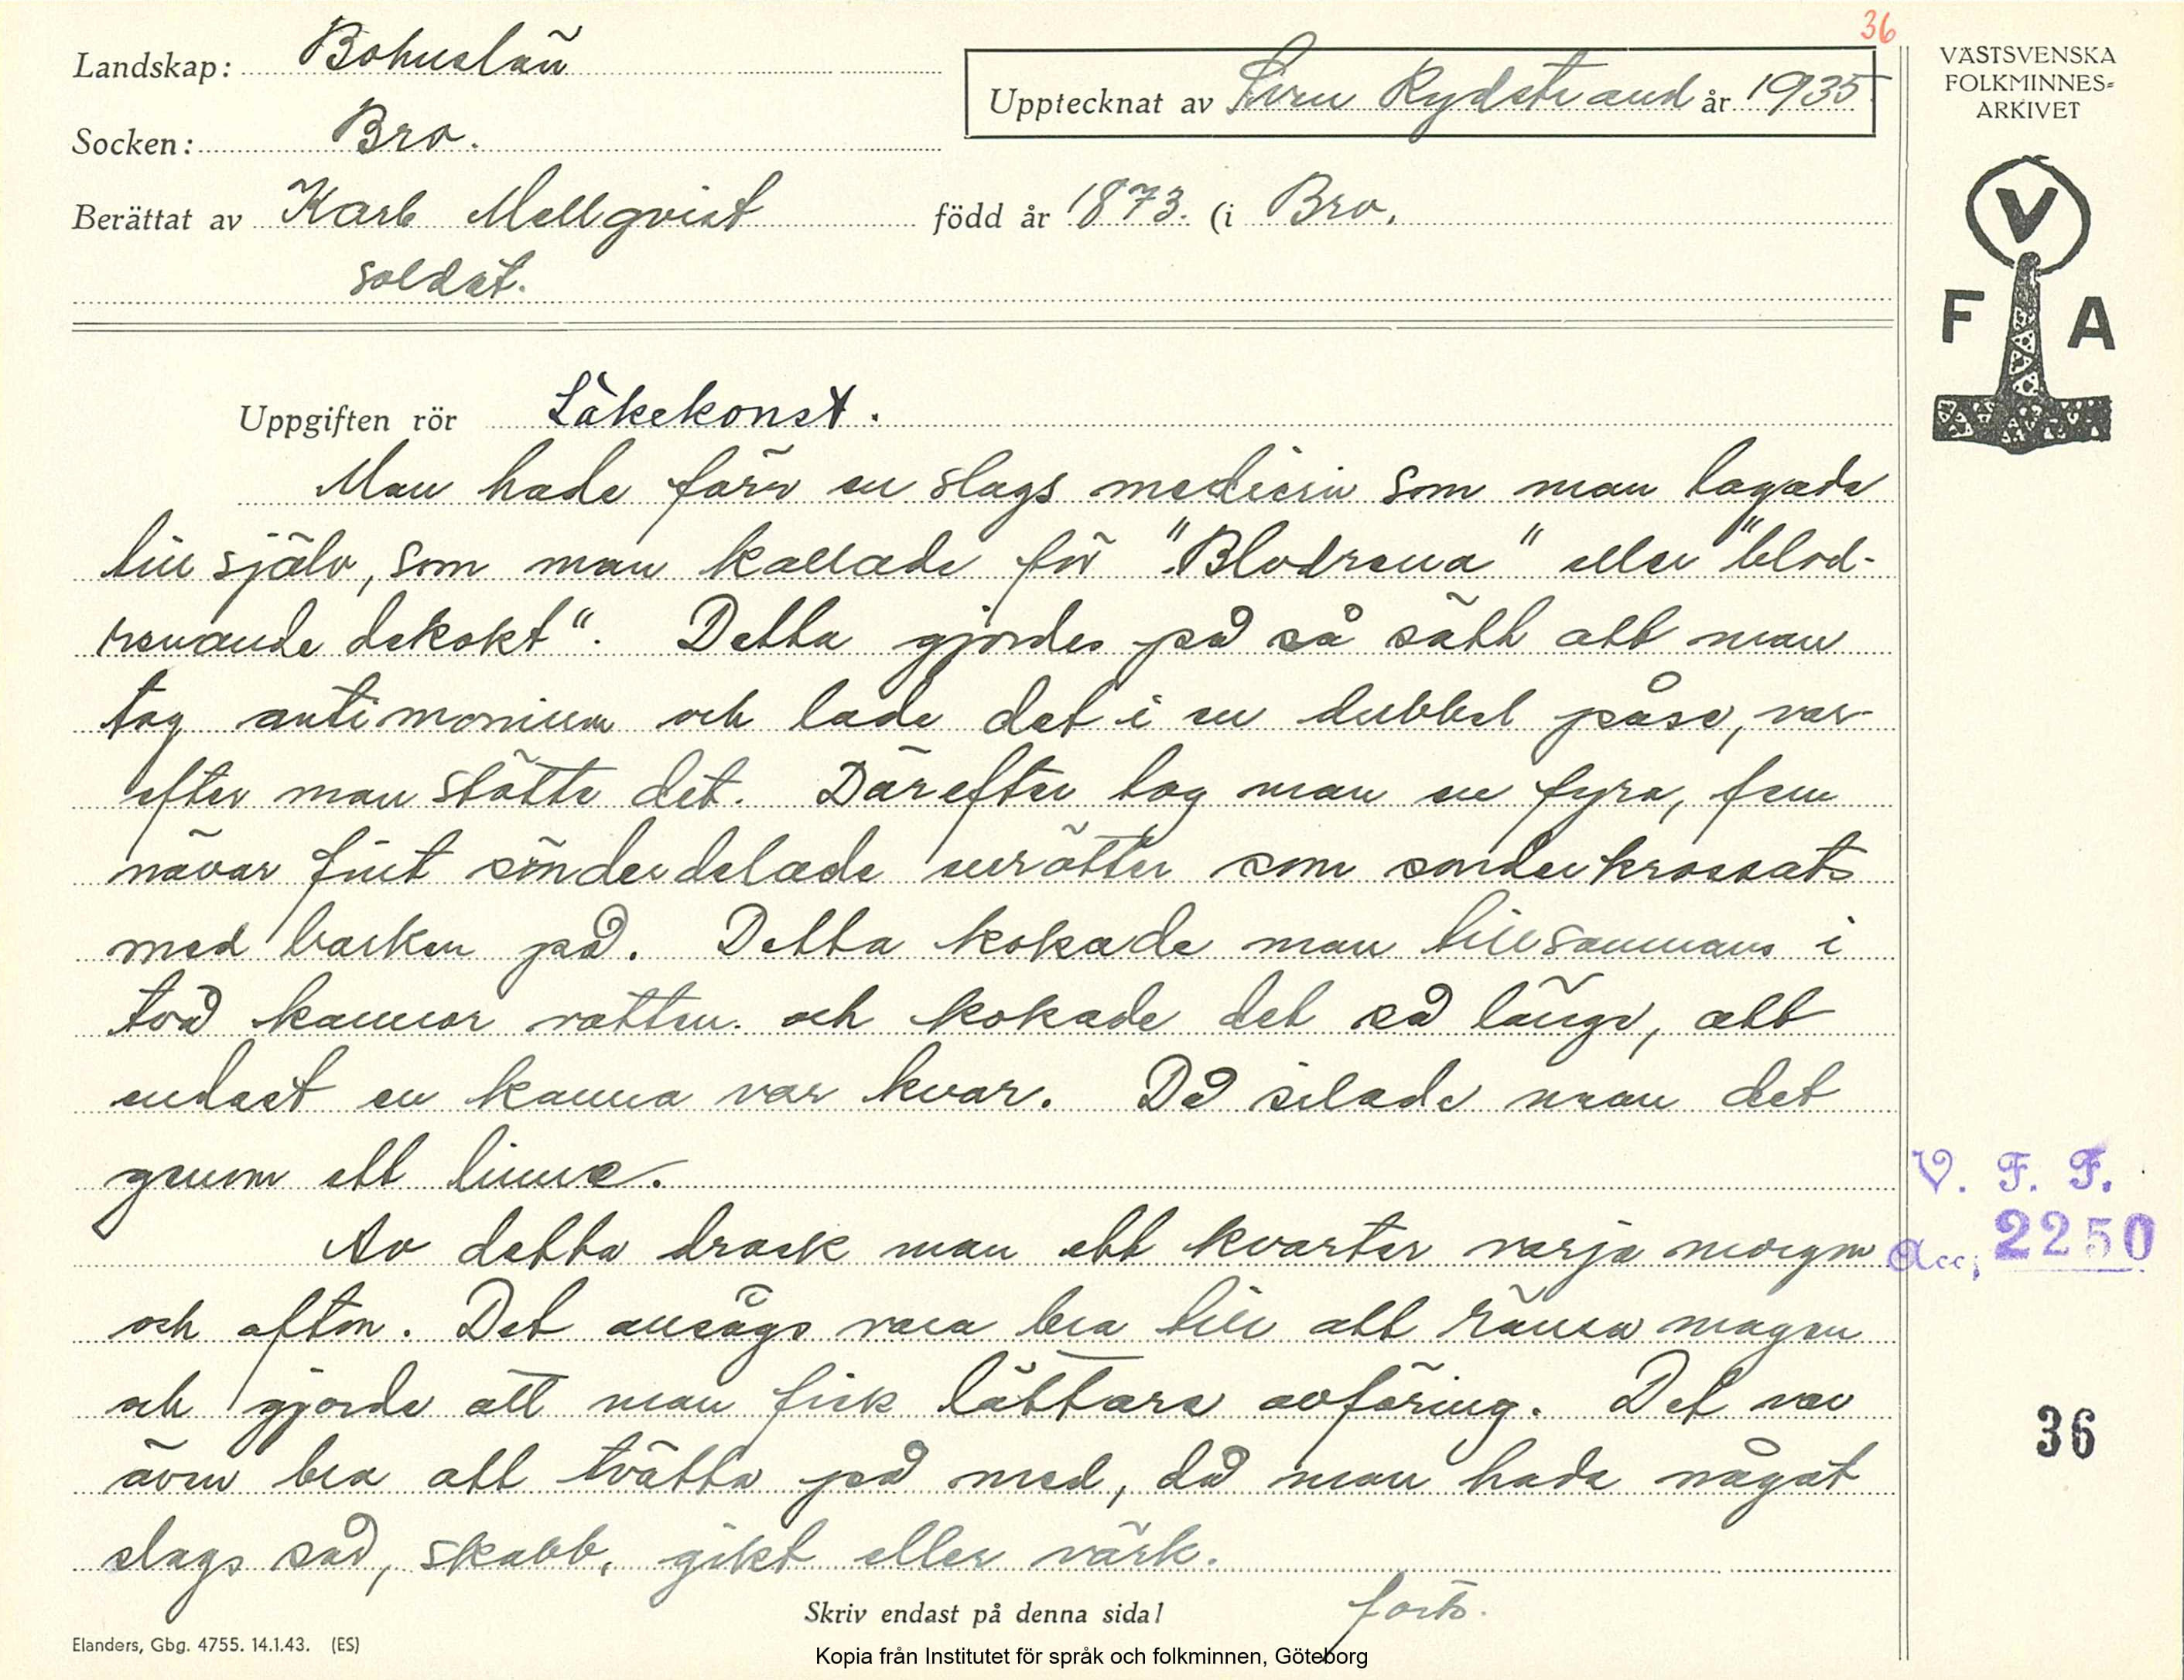 36
Landskap: Bohuslän
Upptecknat av Rydstrand år 1935
VÄSTSVENSKA
FOLKMINNES=
ARKIVET
Socken: Bro.
Berättat av Karl Mellqvist född år 1873. (i Bro.
soldat.
V
F A
Uppgiften rör Läkekonst.
Man hade förr en slags medicin som man lagade
till själv, som man kallade för "Blodrena" eller "blod-
renande dekokt". Detta gjordes på så sätt att man
tog antimonium och lade det i en dubbel påse, var-
efter man stötte det. Därefter tog man en fyra, fem
nävar fint sönderdelade enrötter som sönderkrossats
med barken på. Detta kokade man tillsammans i
två kannor vatten och kokade det så länge, att
endast en kanna var kvar. Då silade man det
genom ett linne.
Av detta drack man ett kvarter varje morgon
och afton. Det ansågs vara bra till att ränsa magen
och gjorde att man fick lättare avföring. Det var
även bra att tvätta på med, då man hade något
slags sår, skabb, gikt eller värk.
V. F. F.
Acc, 2250
36
Skriv endast på denna sida!
forts.
Elanders, Gbg. 4755. 14.1.43. (ES)
Kopia från Institutet för språk och folkminnen, Göteborg